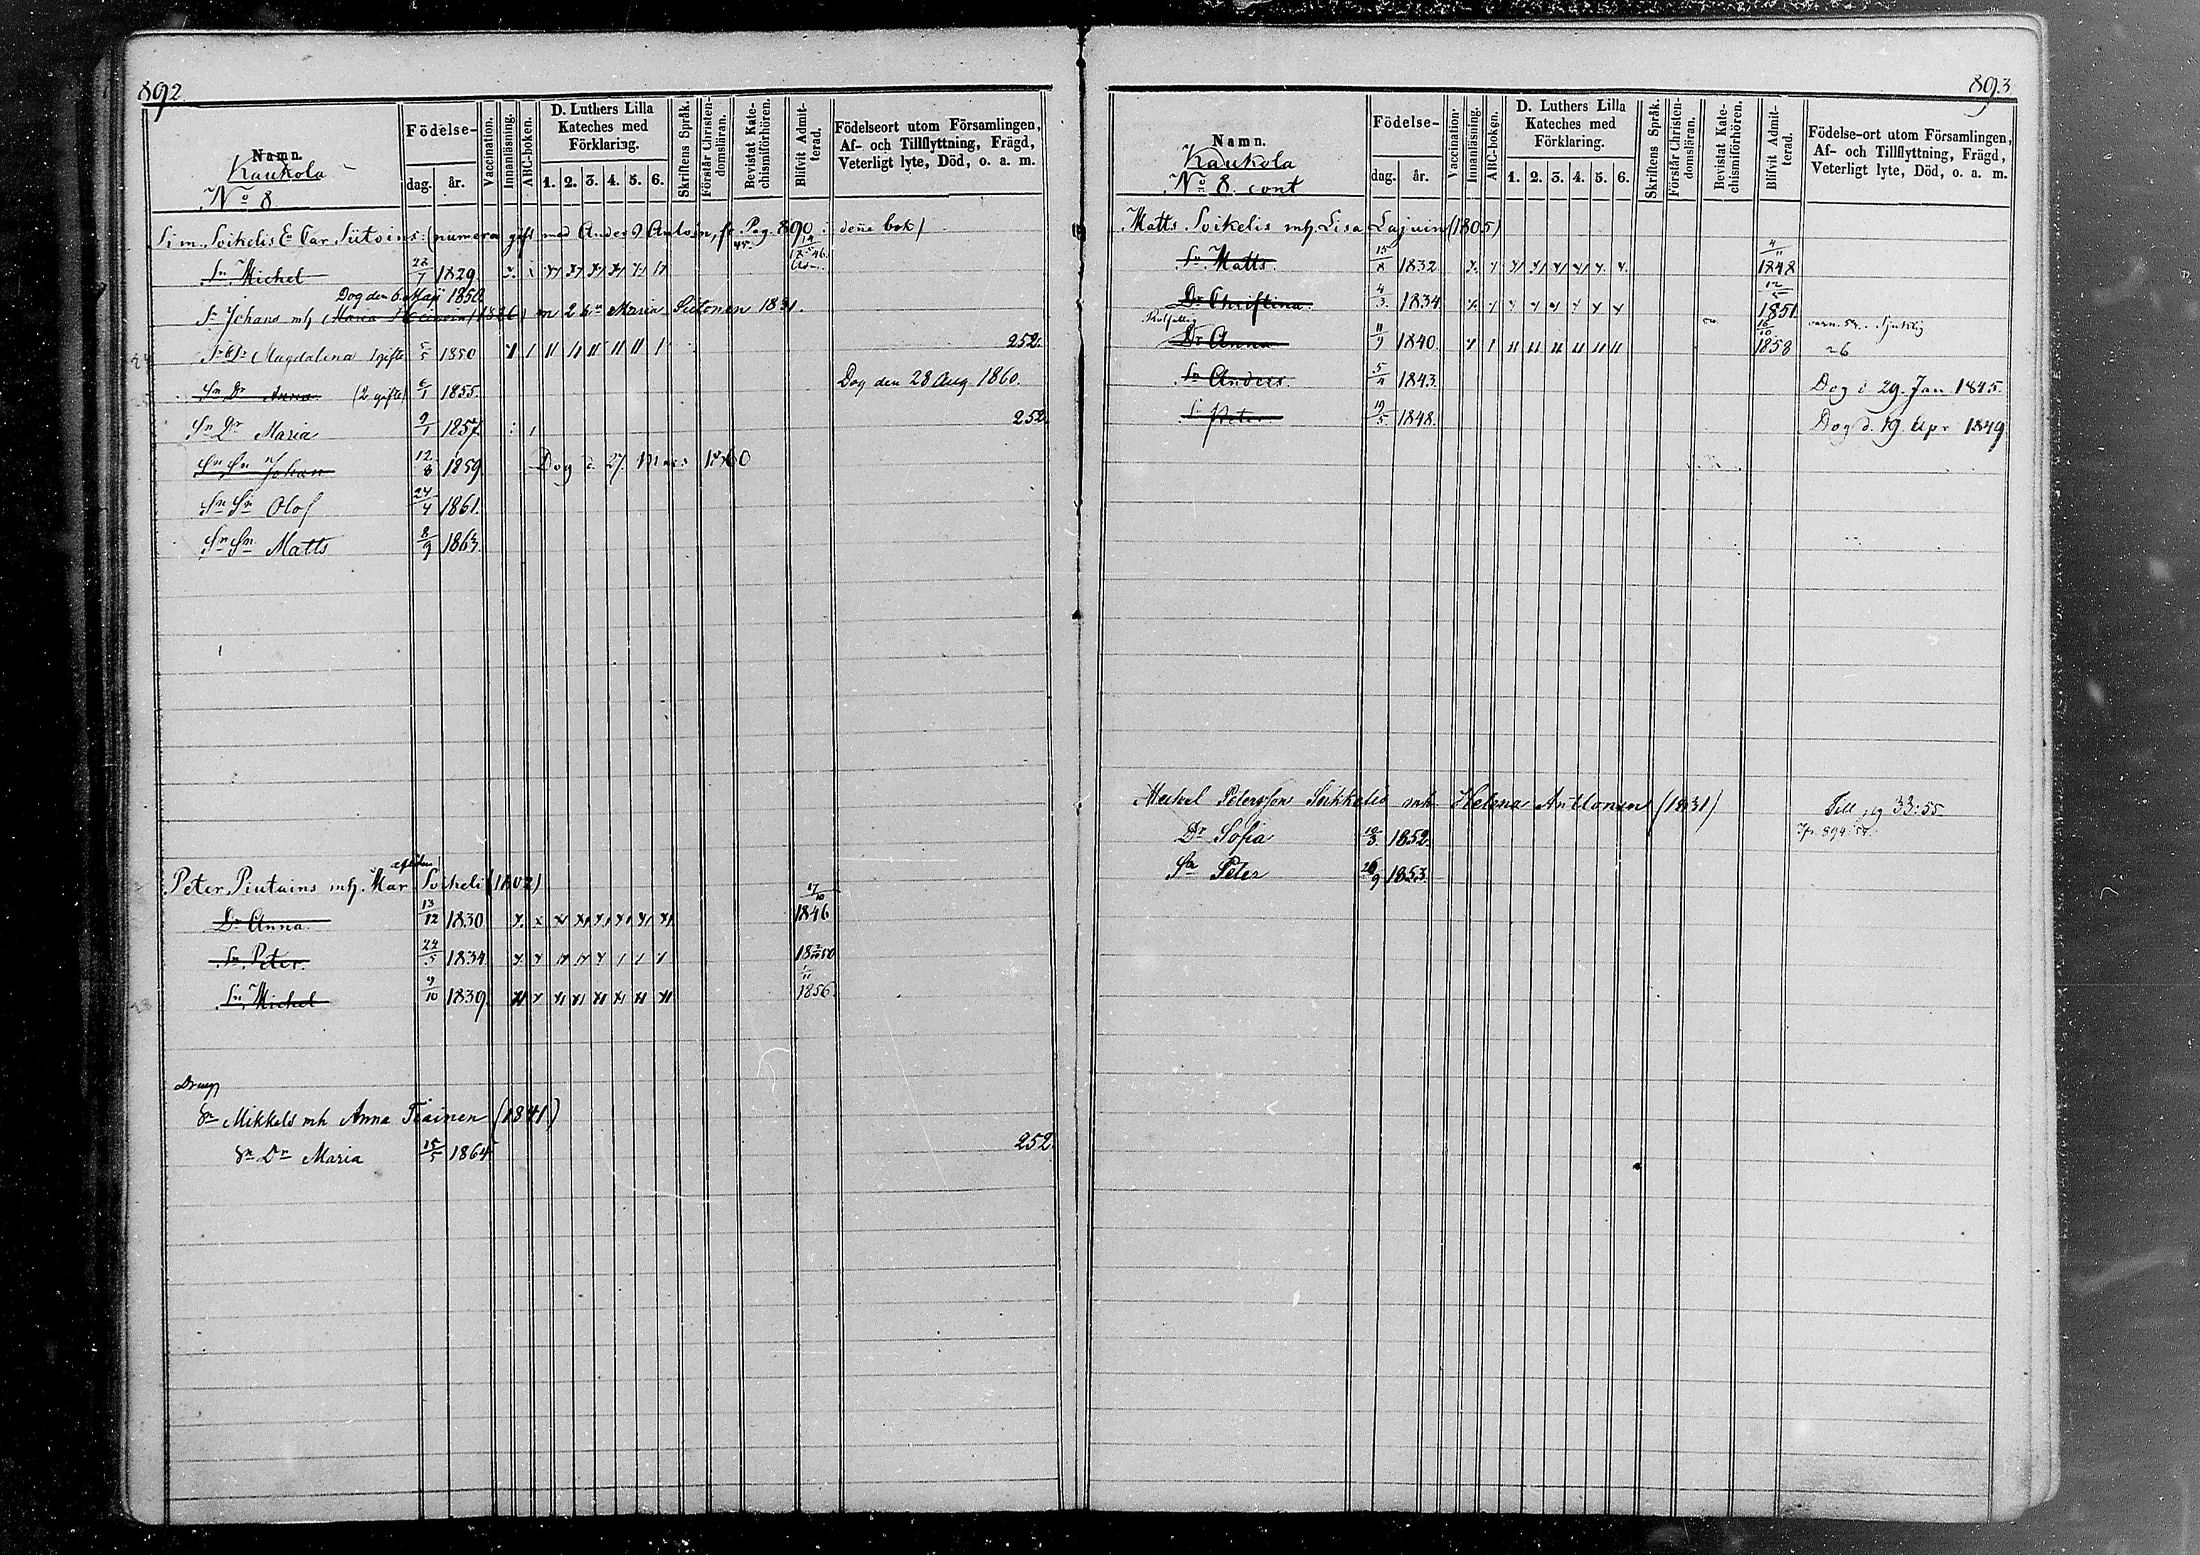 892
Namn.
Kaukola
No 8
Födelse-
dag. år.
Vaccination.
Innanläsning.
ABC-boken.
D. Luthers Lilla Kateches med Förklaring.
1. 2. 3. 4. 5. 6.
Skriftens Språk.
Förstår Christendomsläran.
Bevistat Katechismiförhören.
Blifvit Admitterad.
Födelseort utom Församlingen, Af- och Tillflyttning, Frägd, Veterligt lyte, Död, o. a. m.
Sim. Soikelis E. Car. Siitoins (numera gift med Anders Antoin, se Pag. 890 i denna bok)
Sn Michel 22/7 1829 14/5 1846
Dog den 6 Maji 1850
Sn Johans mh Maria (1826) m 2 hu Maria Siitonen 1831.
Sn Dr Magdalena 1 gifte 5/5 1850 252.
Sn Dr Anna (2 gifte) 6/1 1855. Dog den 28 Aug 1860.
Sn Dr Maria 9/1 1857 252
Sn Sn Johan 12/8 1859. Dog d. 27 Mars 1860
Sn Sn Olof 24/4 1861.
Sn Sn Matts 8/9 1863.
afliden
Peter Piutuins mh. Mar Soikeli (1802)
Dr Anna 13/12 1830 17/10 1846
Sn Peter 22/5 1834 1850
Sn Michel 9/10 1839. 1/11 1856.
Dräng
Sn Mikkels mh Anna Tiainen (1841)
Sn Dr Maria 15/5 1864 252.
893
Namn.
Kaukola
No 8. cont
Födelse-
dag. år.
Vaccination.
Innanläsning.
ABC-boken.
D. Luthers Lilla Kateches med Förklaring.
1. 2. 3. 4. 5. 6.
Skriftens Språk.
Förstår Christendomsläran.
Bevistat Katechismiförhören.
Blifvit Admitterad.
Födelse-ort utom Församlingen, Af- och Tillflyttning, Frägd, Veterligt lyte, Död, o. a. m.
Matts Soikelis mh. Lisa Lajuin (1805)
Sn Matts 15/8 1832 4/11 1848
Dr Christina 4/3 1834 12/5 1851.
Dr Anna 11/9 1840 16/10 1858
Sn Anders 5/11 1843. Dog d 29. Jan 1845.
Sn Peter 19/5 1848. Dog d. 19 Apr 1849
Michel Petersson Soikkelis mh Helena Anttonen (1831) Till pg 33:55.
Dr Sofia 10/3 1852.
Sn Peter 26/9 1853.